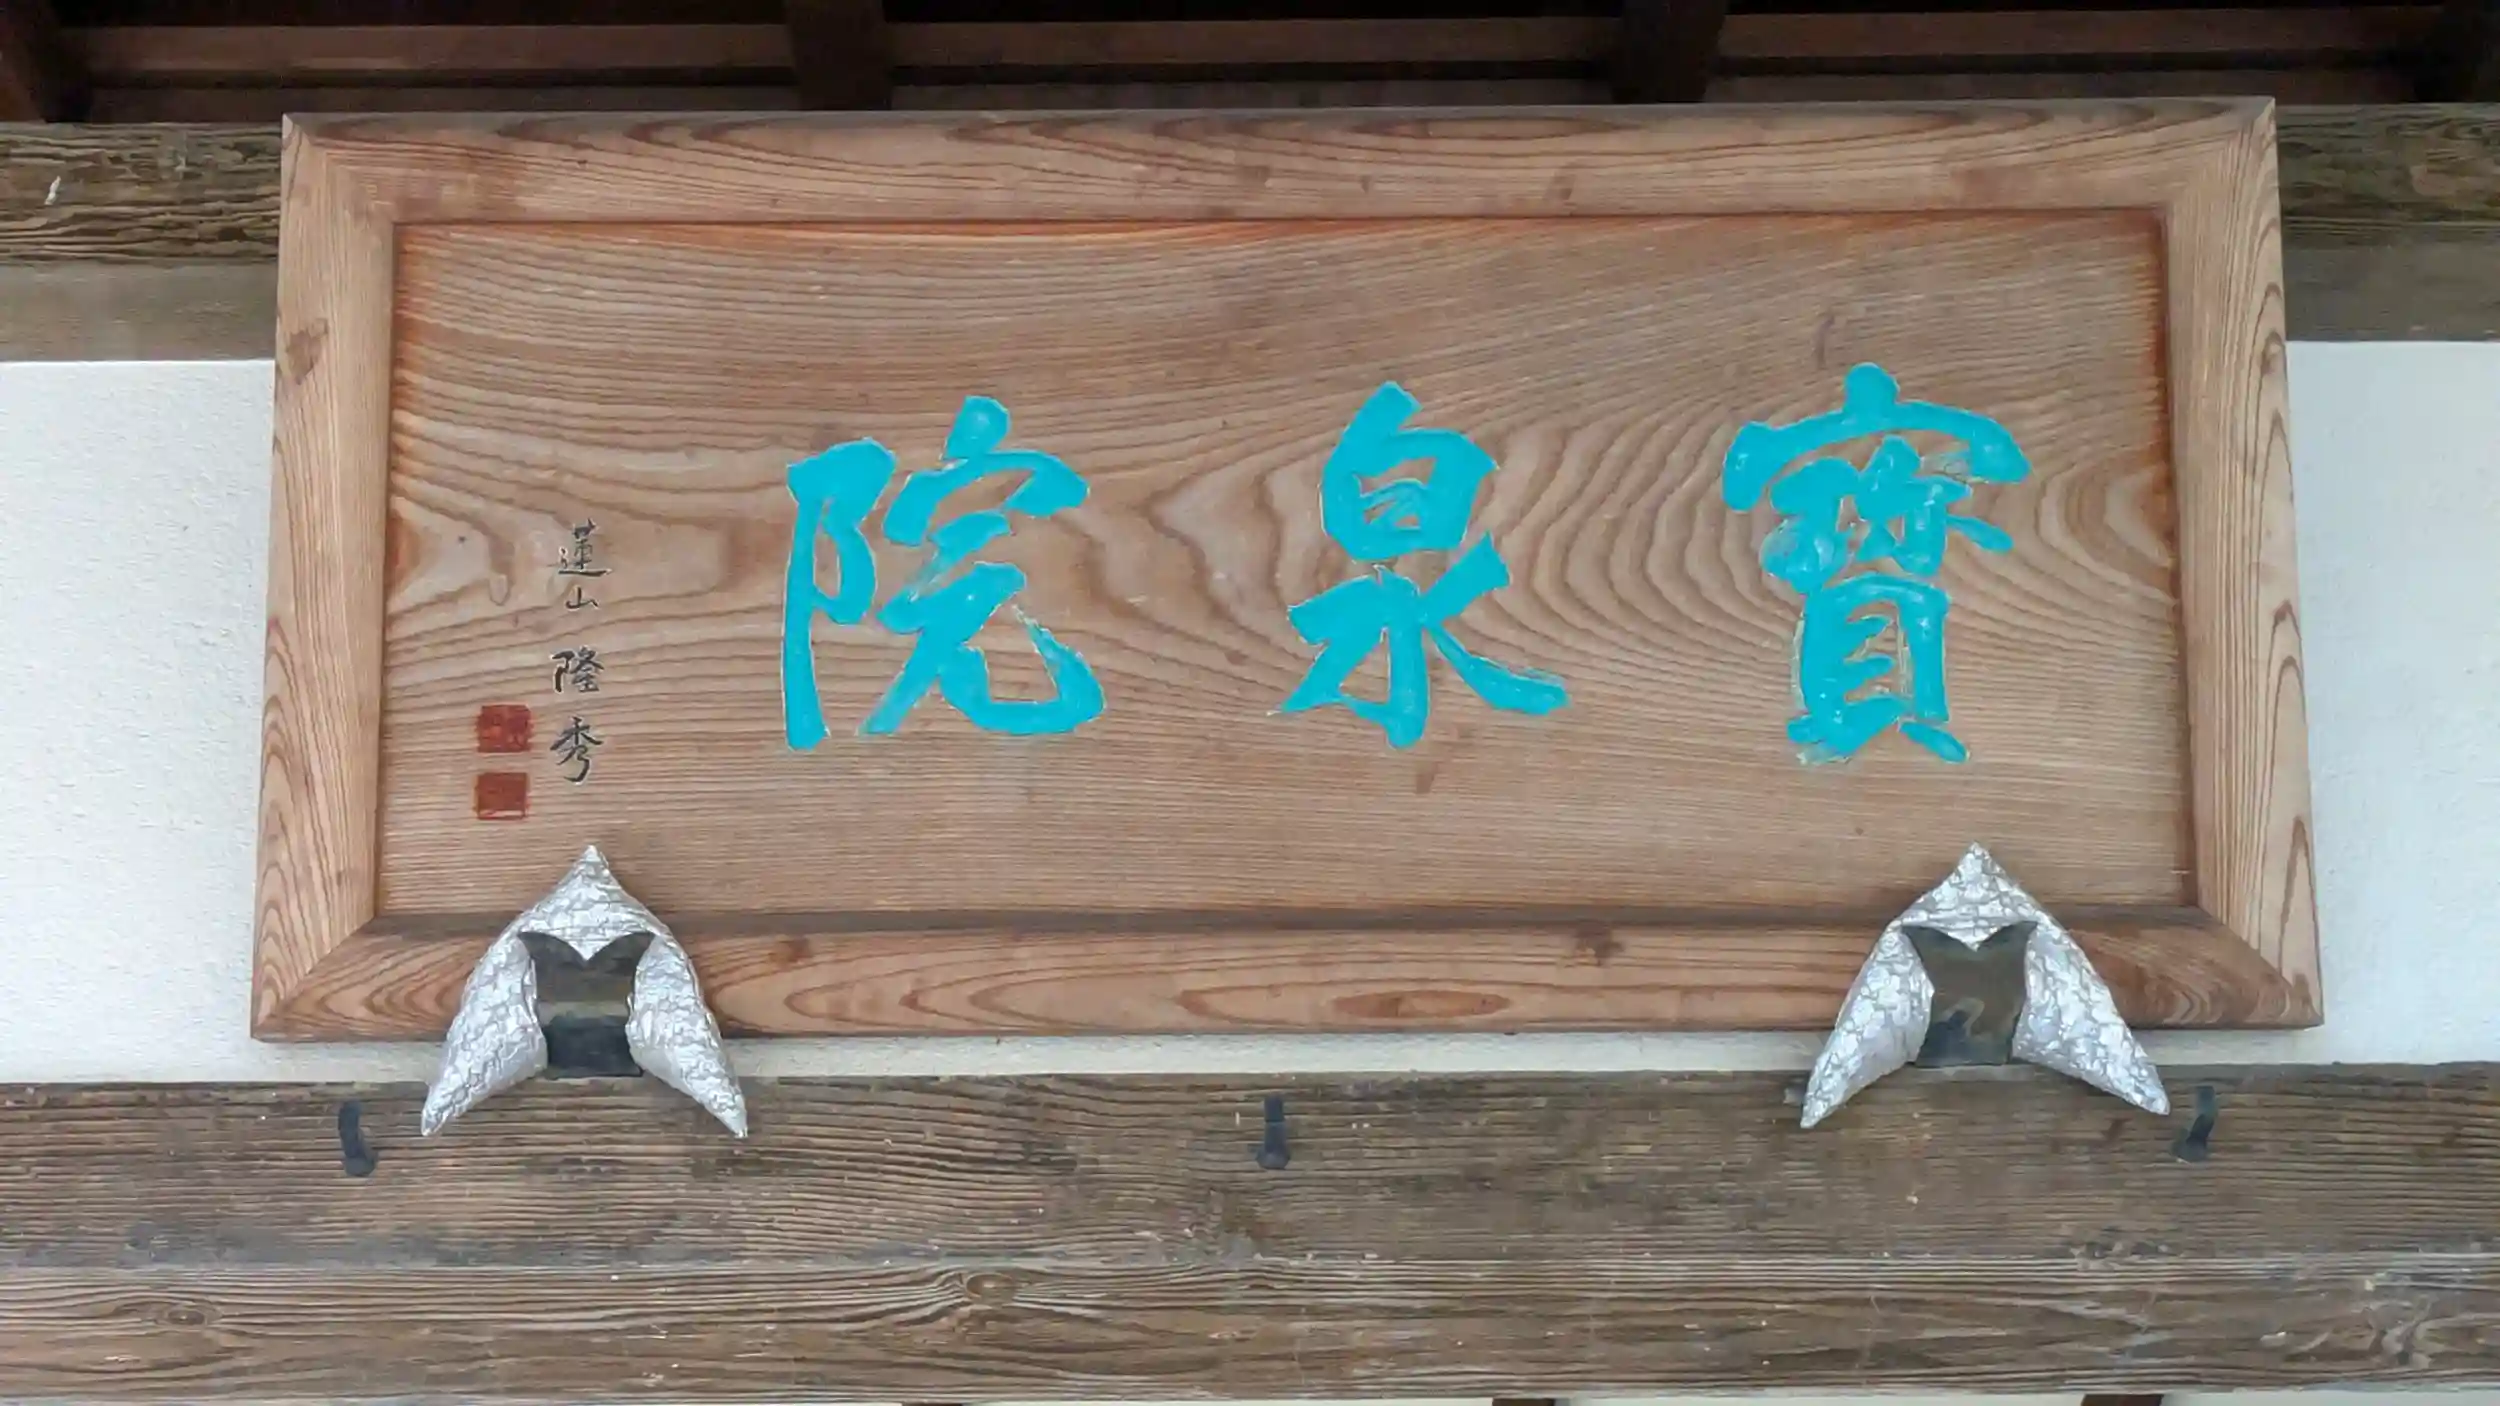 寳泉院
蓮山 隆秀